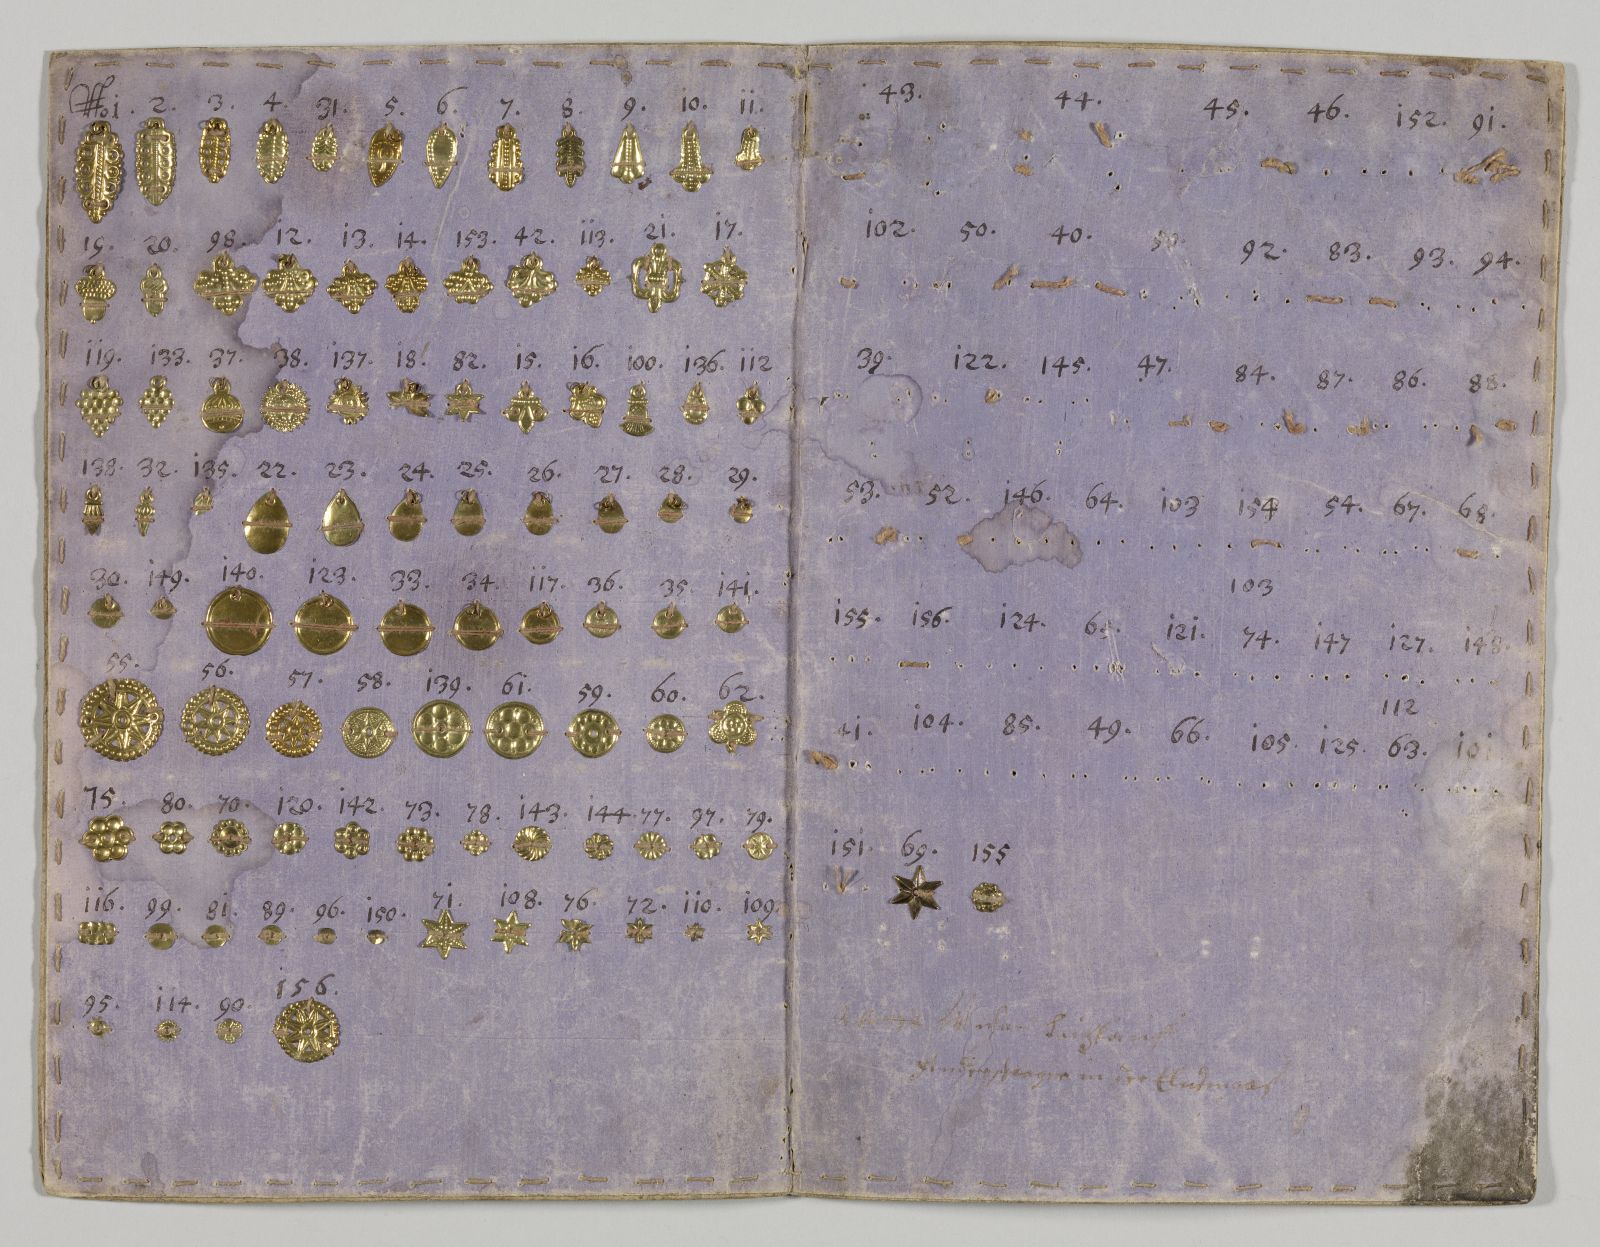 No. 1. 2. 3. 4. 31. 5. 6. 7. 8. 9. 10. 11.
19. 20. 98. 12. 13. 14. 153. 42. 113. 21. 17.
119. 133. 37. 38. 137. 18. 82. 15. 16. 100. 136. 112
138. 32. 135. 22. 23. 24. 25. 26. 27. 28. 29.
30. 149. 140. 123. 33. 34. 117. 36. 35. 141.
55. 56. 57. 58. 139. 61. 59. 60. 62.
75. 80. 70. 120. 142. 73. 78. 143. 144. 77. 97. 79.
116. 99. 81. 89. 96. 150. 71. 108. 76. 72. 110. 109.
95. 114. 90. 156.
43. 44. 45. 46. 152. 91.
102. 50. 40. 92. 83. 93. 94.
39. 122. 145. 47. 84. 87. 86. 88.
53. 52. 146. 64. 103 154 54. 67. 68.
103
155. 156. 124. 121. 74. 147 127. 148.
112
41. 104. 85. 49. 66. 105. 125. 63. 101
151. 69. 155